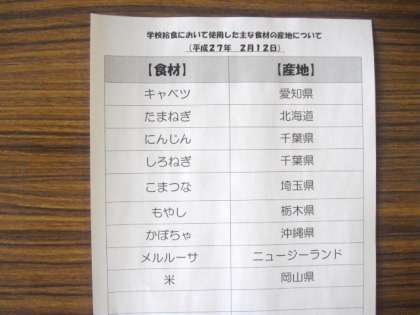 学校給食において使用した主な食材の産地について
(平成27年 2月12日)
【食材】 【産地】
キャベツ 愛知県
たまねぎ 北海道
にんじん 千葉県
しろねぎ 千葉県
こまつな 埼玉県
もやし 栃木県
かぼちゃ 沖縄県
メルルーサ ニュージーランド
米 岡山県